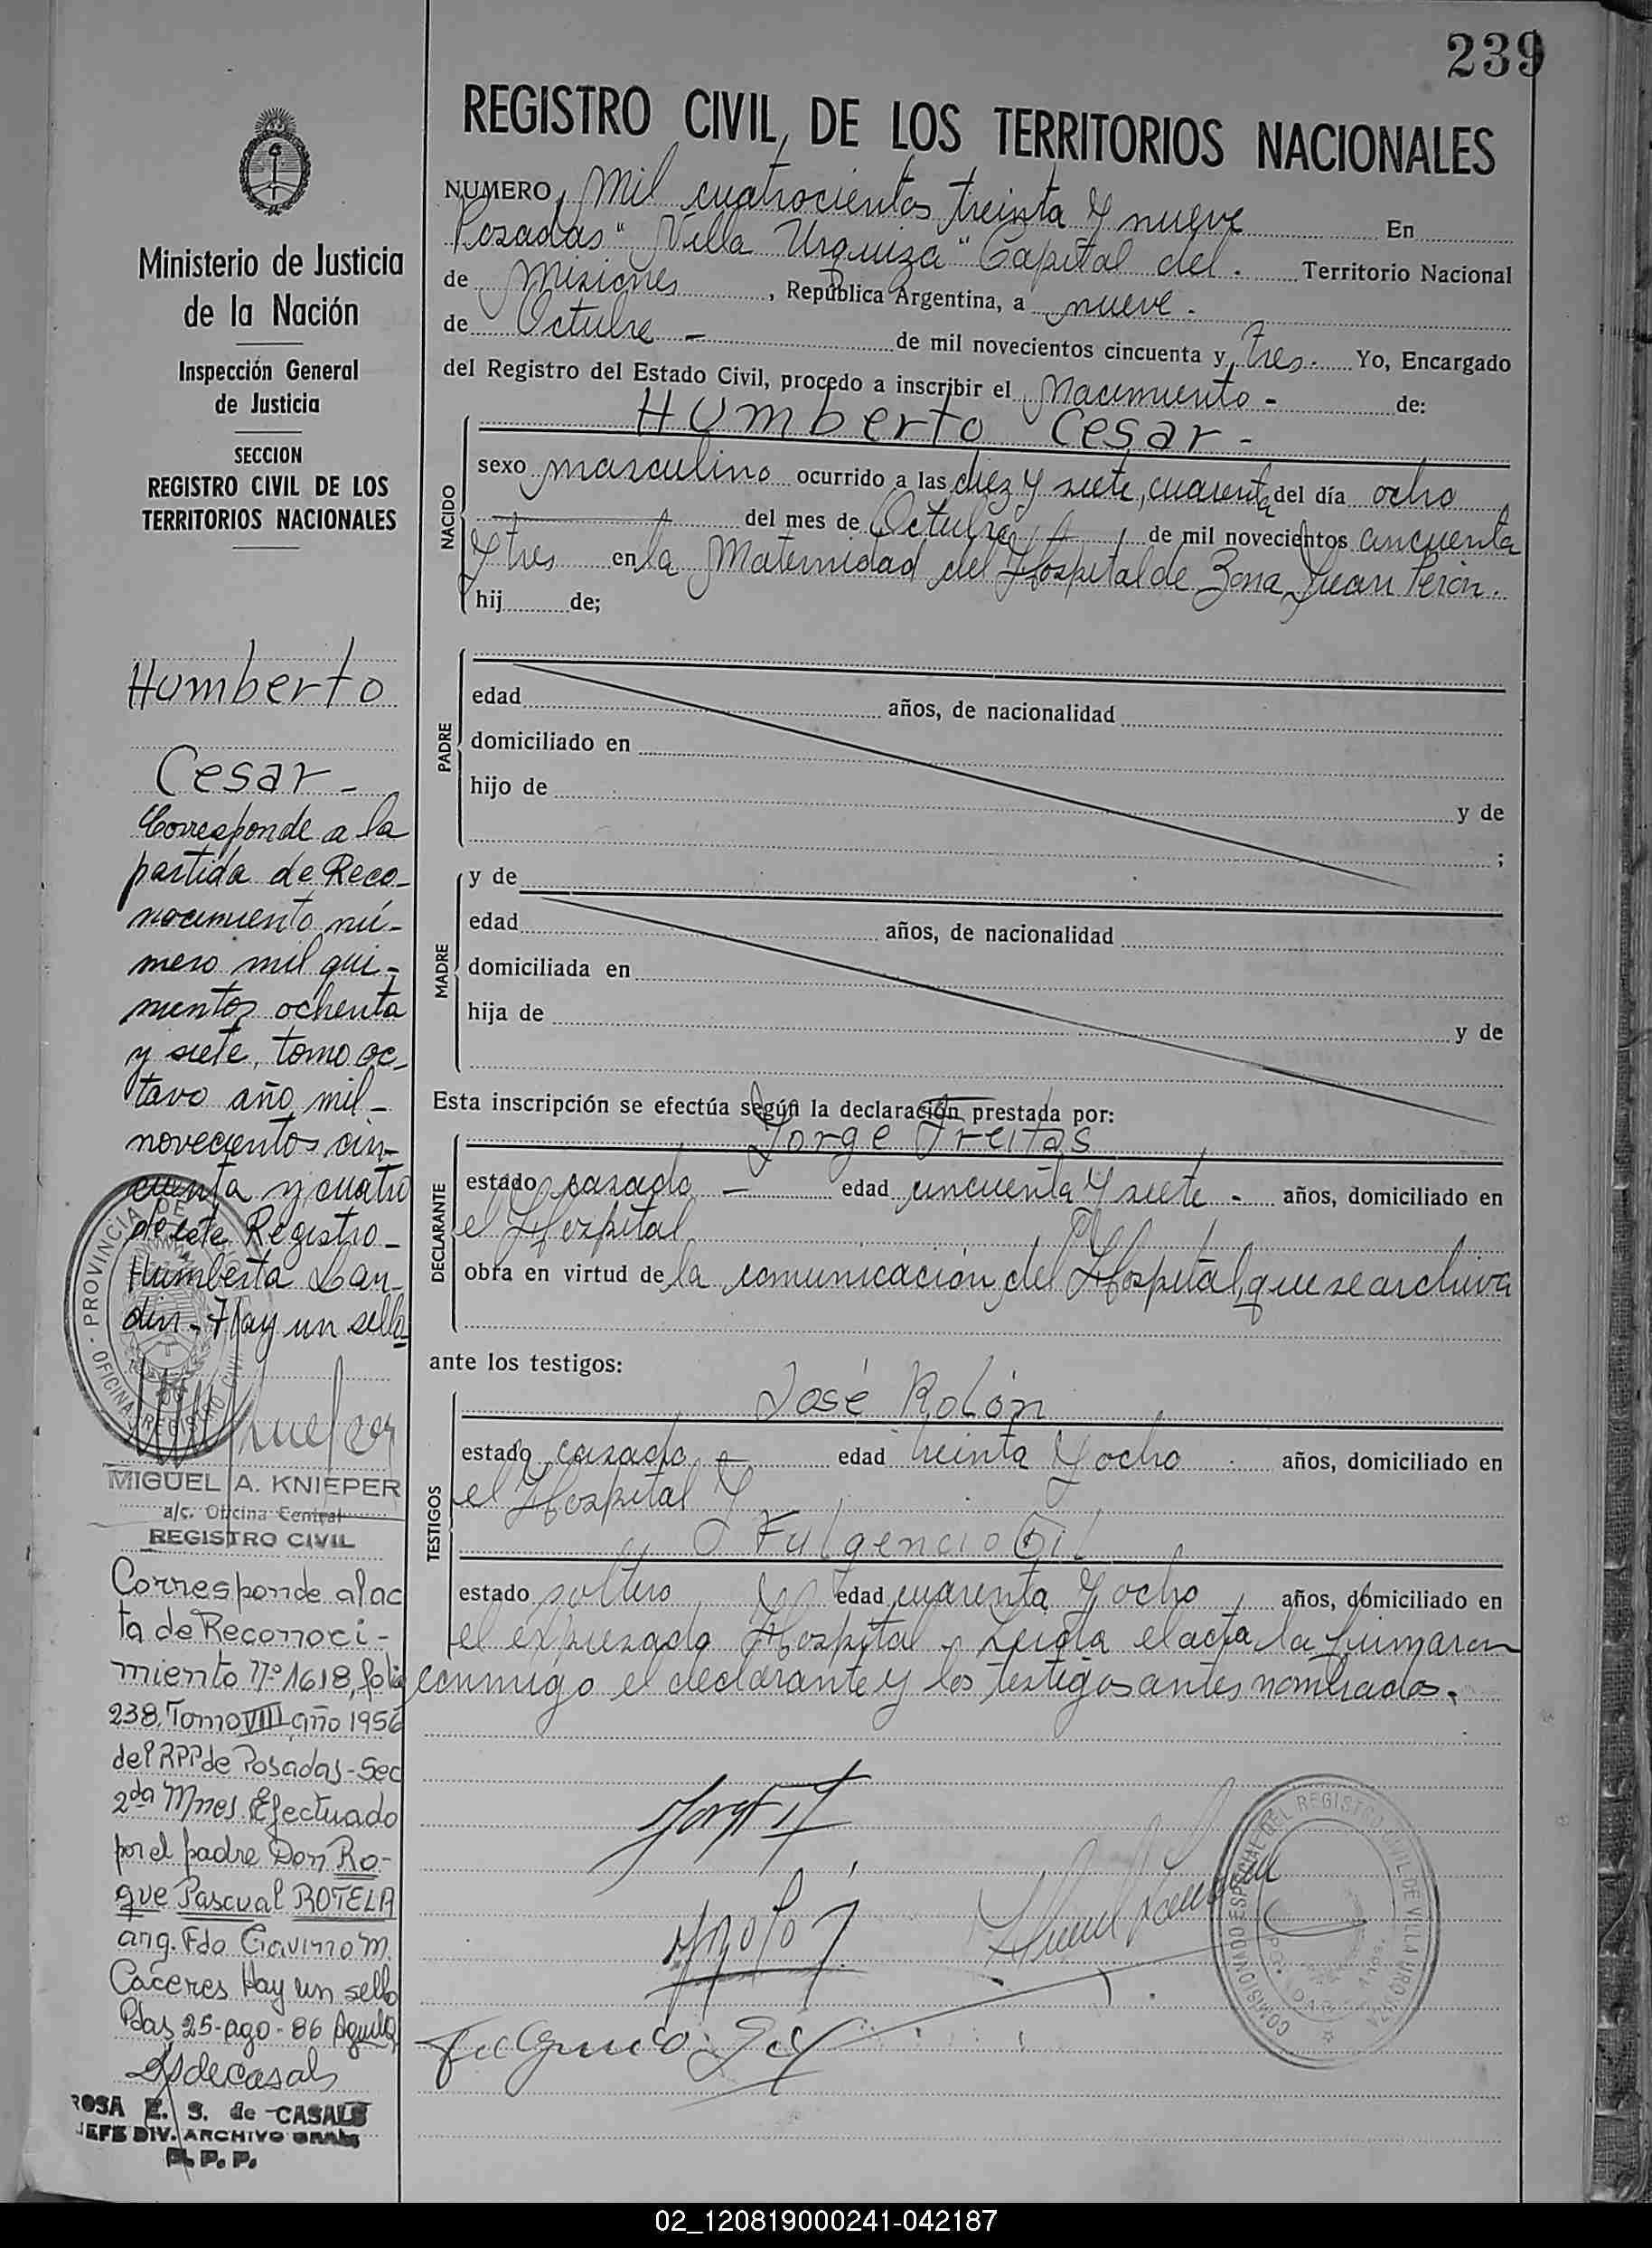 239
REGISTRO CIVIL DE LOS TERRITORIOS NACIONALES
NUMERO Mil cuatrocientos treinta y nueve En
Posadas "Villa Urquiza" Capital del. Territorio Nacional
de Misiones, República Argentina, a nueve.
de Octubre - de mil novecientos cincuenta y tres. Yo, Encargado
del Registro del Estado Civil, procedo a inscribir el Nacimiento - de:
Humberto Cesar -
NACIDO
sexo masculino ocurrido a las diez y siete, cuarenta del día ocho
del mes de Octubre de mil novecientos cincuenta
y tres en la Maternidad del Hospital de Zona Juan Perón.
hij de;
PADRE
edad años, de nacionalidad
domiciliado en
hijo de y de
;
MADRE
y de
edad años, de nacionalidad
domiciliada en
hija de y de
Esta inscripción se efectúa según la declaración prestada por:
Jorge Freitas
DECLARANTE
estado casado - edad cincuenta y siete - años, domiciliado en
el Hospital
obra en virtud de la comunicación del Hospital, que se archiva
ante los testigos:
José Rolón
TESTIGOS
estado casado - edad treinta y ocho años, domiciliado en
el Hospital y
Fulgencio Gil
estado soltero edad cuarenta y ocho años, domiciliado en
el expresado Hospital. Leida el acta la firmaron
conmigo el declarante y los testigos antes nombrados.
Fulgencio Gil
COMISIONADO ESPECIAL DEL REGISTRO CIVIL DE VILLA URQUIZA
Ministerio de Justicia
de la Nación
Inspección General
de Justicia
SECCION
REGISTRO CIVIL DE LOS
TERRITORIOS NACIONALES
Humberto
Cesar -
Corresponde a la
partida de Reco-
nocimiento nú-
mero mil qui-
nientos ochenta
y siete, tomo oc-
tavo año mil
novecientos cin-
cuenta y cuatro
de este Registro -
Humberta Lan-
din - Hay un sello
PROVINCIA DE
OFICINA REGISTRO CIVIL
MIGUEL A. KNIEPER
a/c. Oficina Central
REGISTRO CIVIL
Corresponde al ac
ta de Reconoci-
miento Nº 1618, folio
238, Tomo VIII año 1956
del RPP de Posadas - Sec
2da Mnes. Efectuado
por el padre Don Ro-
que Pascual ROTELA
arg. Fdo Gavino M.
Caceres Hay un sello
Pdas, 25-ago-86
ROSA E. S. de CASALS
JEFE DIV. ARCHIVO GRAL
R. P. P.
02_120819000241-042187